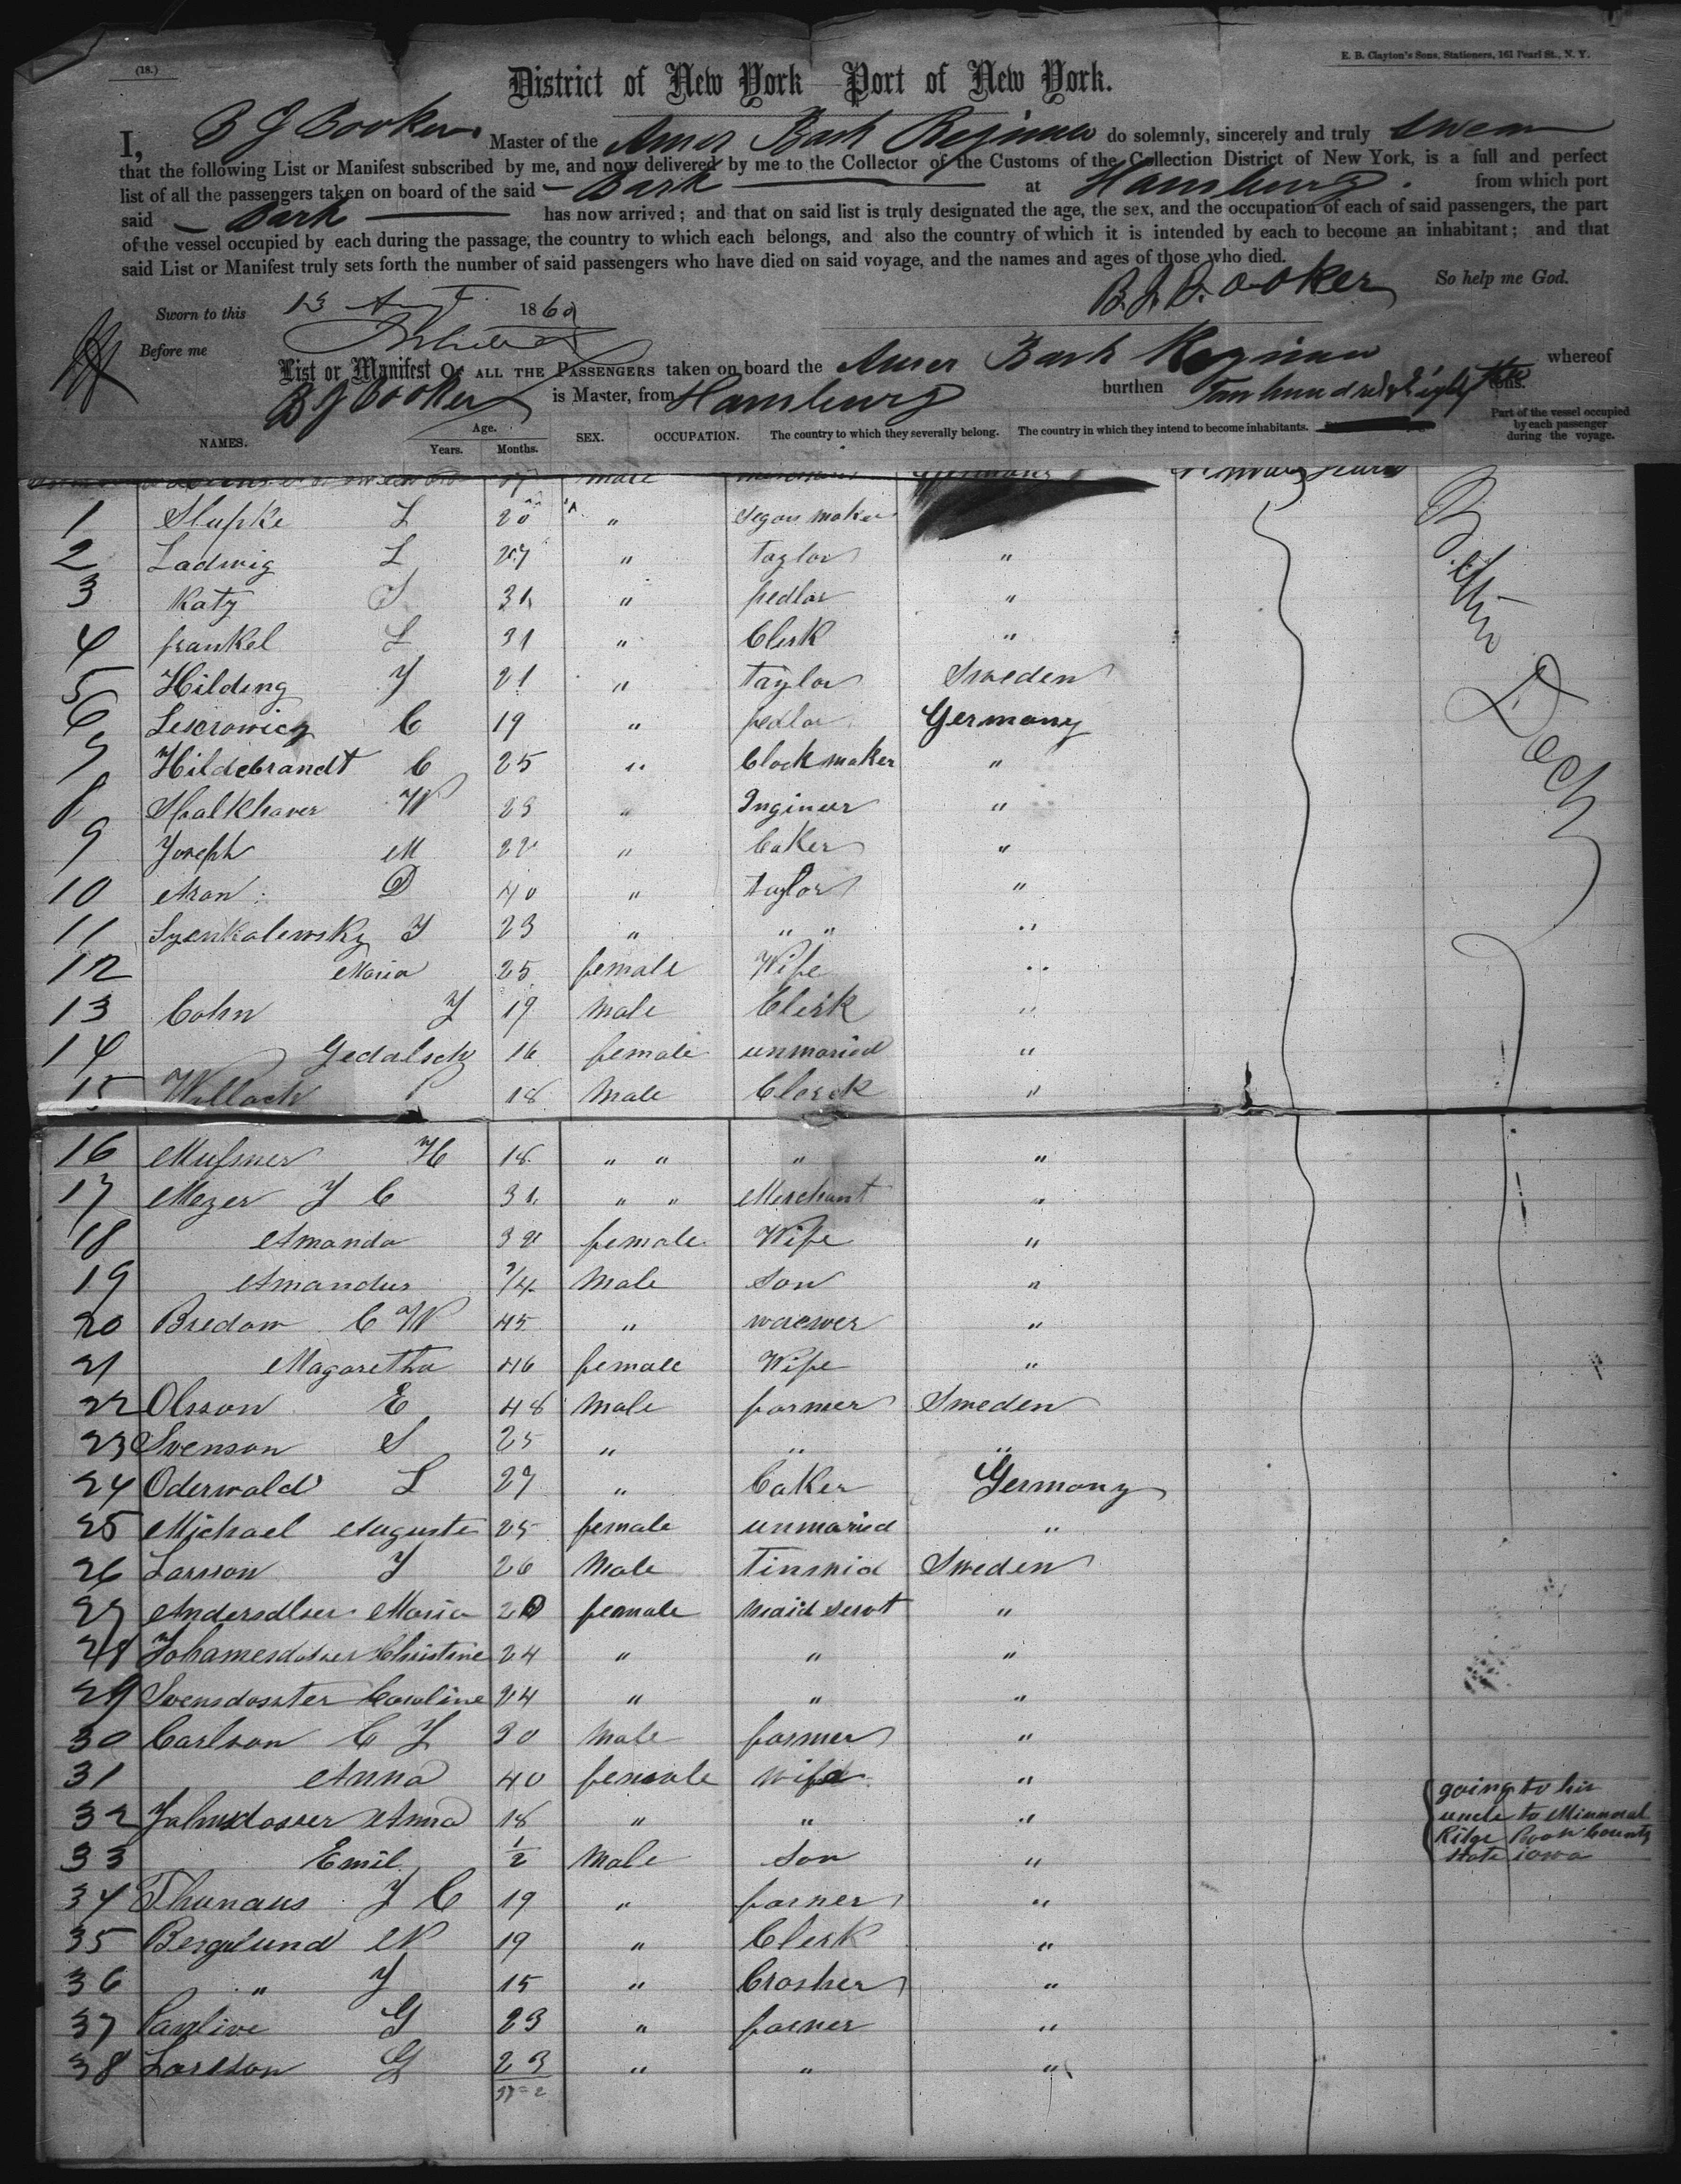 (18.)
E. B. Clayton's Sons, Stationers, 161 Pearl St., N. Y.
District of New York Port of New York.
I, B J Booker Master of the Amer Bark Regina do solemnly, sincerely and truly swear
that the following List or Manifest subscribed by me, and now delivered by me to the Collector of the Customs of the Collection District of New York, is a full and perfect
list of all the passengers taken on board of the said Bark at Hamburg. from which port
said Bark has now arrived; and that on said list is truly designated the age, the sex, and the occupation of each of said passengers, the part
of the vessel occupied by each during the passage, the country to which each belongs, and also the country of which it is intended by each to become an inhabitant; and that
said List or Manifest truly sets forth the number of said passengers who have died on said voyage, and the names and ages of those who died.
B. J. Booker So help me God.
Sworn to this 13 Augt 186
Before me
List or Manifest OF ALL THE PASSENGERS taken on board the Amer Bark Regina whereof
B J Booker is Master, from Hamburg burthen tons.
NAMES. Age. Years. Months. SEX. OCCUPATION. The country to which they severally belong. The country in which they intend to become inhabitants. Part of the vessel occupied by each passenger during the voyage.
male Germany
1 Slupke L 20 " Segar maker
2 Ladwig L 27 " taylor "
3 Katz S 31 " pedlar "
4 frankel L 31 " Clerk "
5 Hilding J 21 " taylor Sweden
6 Lescrowicz C 19 " pedlar Germany
7 Hildebrandt C 25 " Clockmaker "
8 Spalkhaver W 23 " Ingineer "
9 Joseph M 22 " baker "
10 Aron D 40 " taylor "
11 Szenkalewsky J 23 " " " "
12 Maria 25 female Wife "
13 Cohn J 19 male Clerk "
14 Gedalsch 16 female unmaried "
15 Wollach 18 male Clerck "
16 Mußner H 18 " " " "
17 Mezer J C 31 " " Merchant "
18 Amanda 32 female Wife "
19 Amandus 3/4 male son "
20 Bredow C W 45 " waewer "
21 Magaretha 46 female Wife "
22 Olsson E 48 male farmer Sweden
23 Svenson S 25 " " "
24 Oderwald L 27 " baker Germany
25 Michael Auguste 25 female unmaried "
26 Larsson J 26 male Tinsmid Sweden
27 Andersdtser Maria 20 female maid servt "
28 Johamesdotser Christine 24 " " "
29 Svensdosster Caroline 24 " " "
30 Carlson C J 30 male farmer "
31 Anna 40 female wife "
32 Johnsdosser Anna 18 " " "
33 Emil 1/2 male son "
34 Thunaus J C 19 " farner "
35 Berglund N 19 " Clerk "
36 " J 15 " Crosher "
37 Panlive G 23 " farner "
38 Larsson G 23 " " "
Bettwn Deck
going to his
uncle to Minneral
Ridge Boon County
state iowa